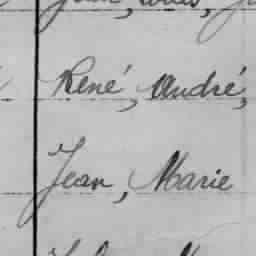 René, André,
Jean, Marie